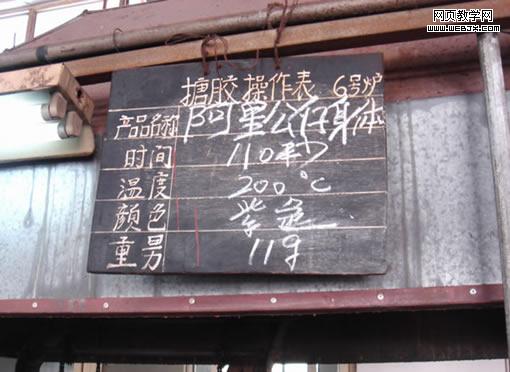 网页教学网
www.webjx.com
搪胶操作表 6号炉
产品名称 阿里公仔身体
时间 110秒
温度 200℃
颜色 紫色
重男 119